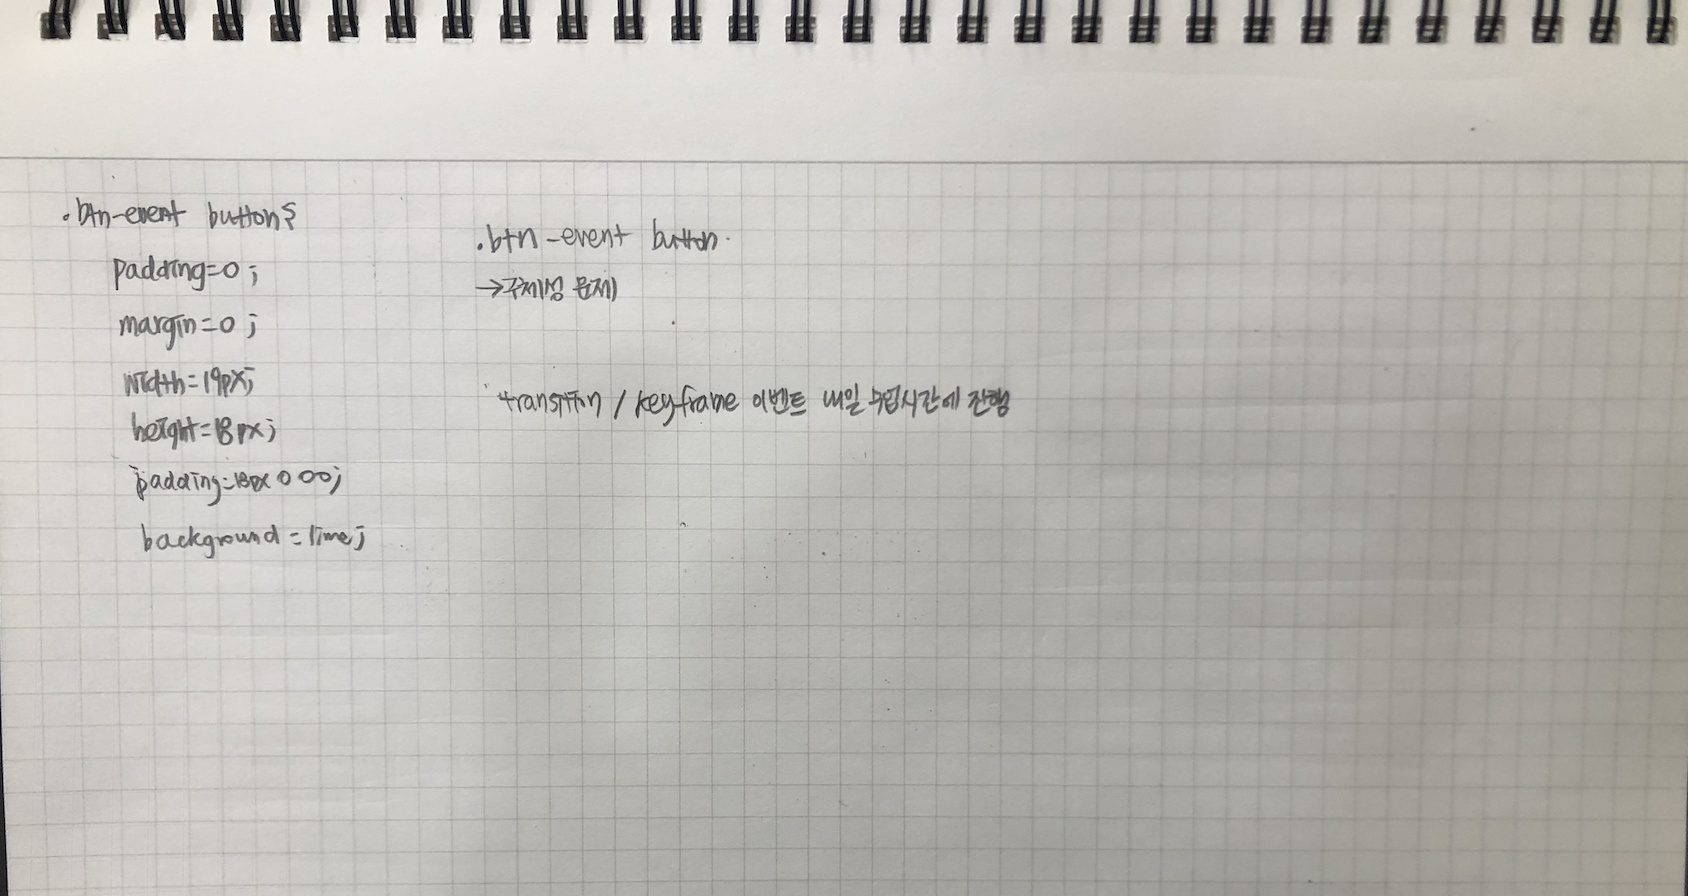 .btn-event button{
padding=0;
margin=0;
width=19px;
height=18px;
padding=18px 0 0 0;
background=lime;
.btn-event button.
→구체성 문제
transition / keyframe 이벤트 내일 수업시간에 진행